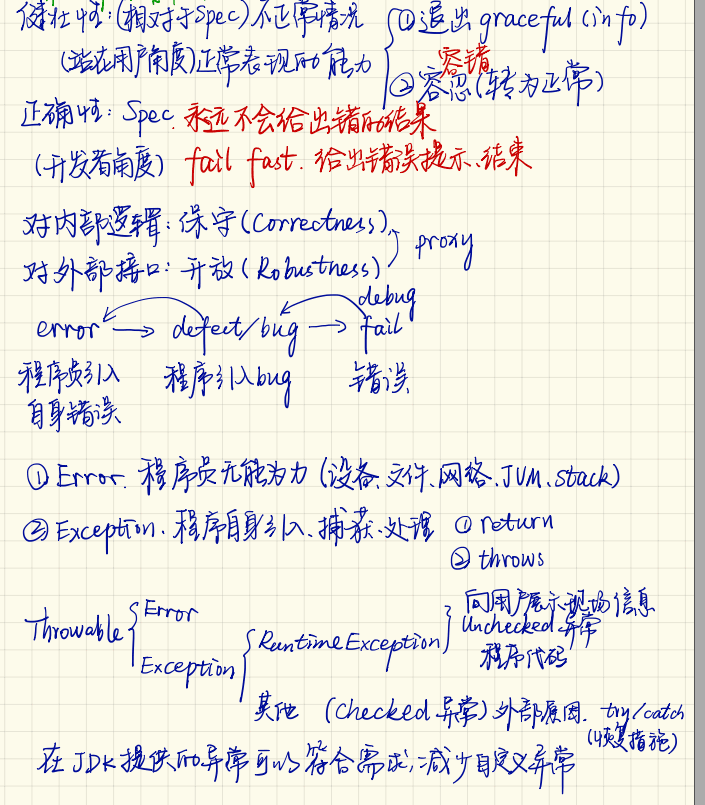 健壮性:(相对于Spec)不正常情况 ①退出 graceful (info)
(站在用户角度)正常表现的能力 容错
②容忍(转为正常)
正确性: Spec. 永远不会给出错的结果
(开发者角度) fail fast. 给出错误提示、结束
对内部逻辑: 保守(Correctness)
对外部接口: 开放(Robustness) proxy
debug
error → defect/bug → fail
程序员引入 程序引入bug 错误
自身错误
① Error. 程序员无能为力 (设备、文件、网络、JVM、stack)
② Exception. 程序自身引入、捕获、处理 ① return
② throws
Throwable { Error
Exception { RuntimeException
向用户展示现场信息
Unchecked 异常
程序代码
其他 (checked 异常) 外部原因. try/catch
(恢复措施)
在JDK提供的异常可以符合需求,减少自定义异常